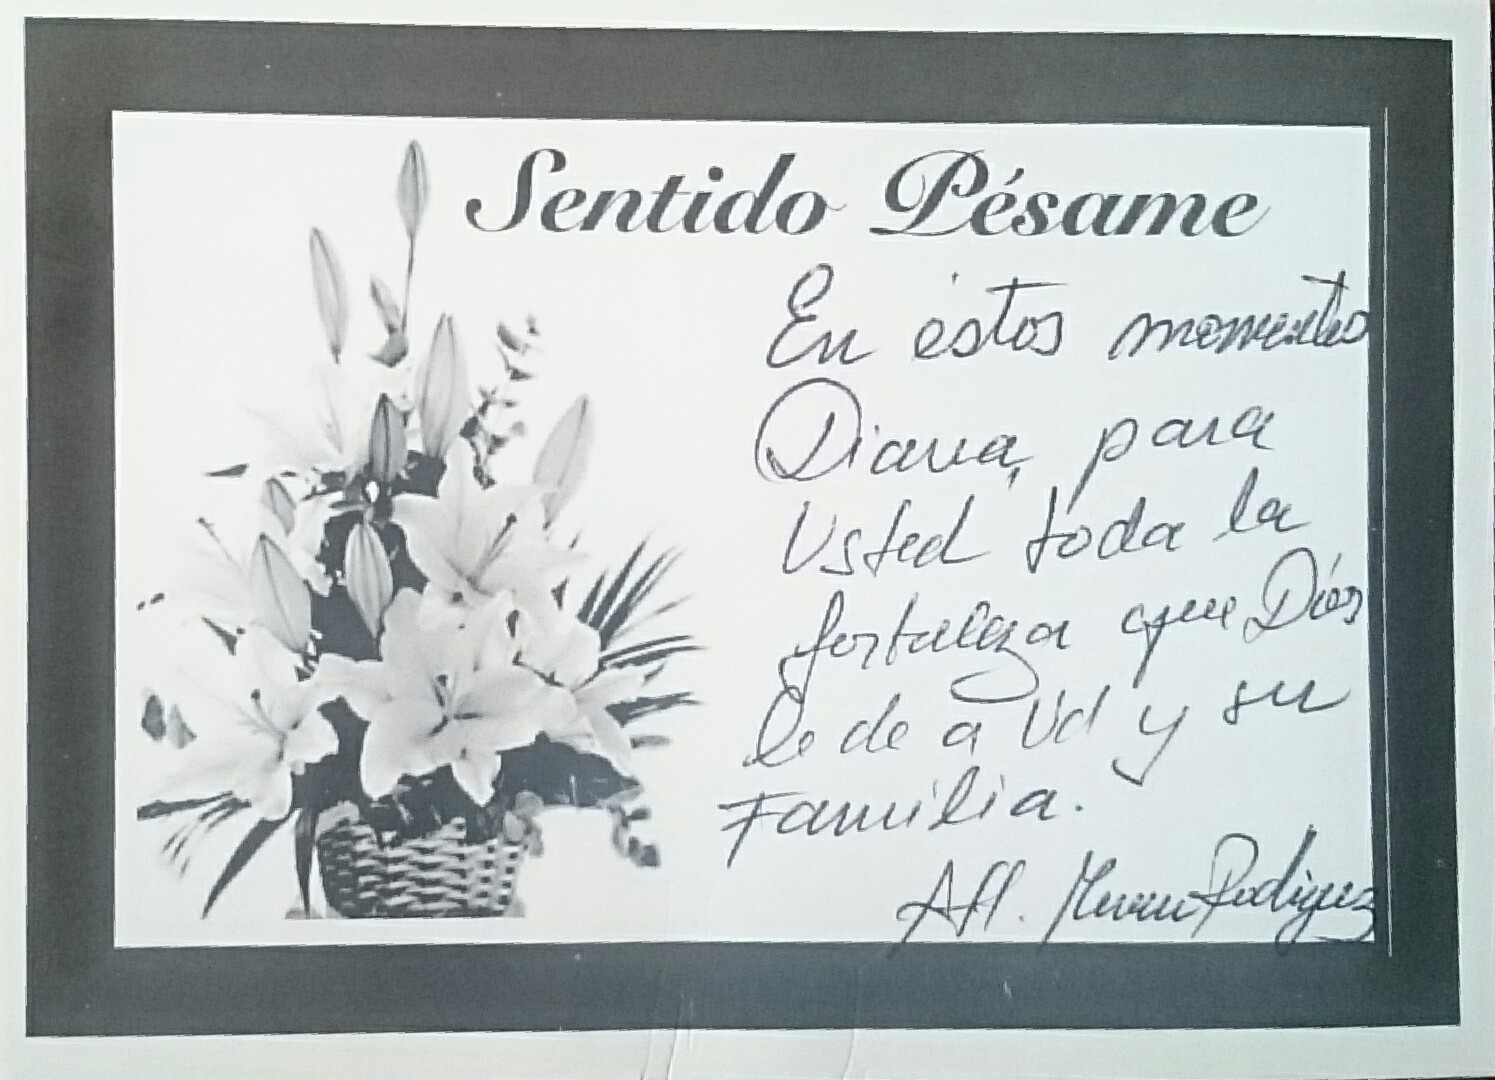 Sentido Pésame
En éstos momentos
Diana, para
Usted toda la
fortaleza que Diós
le de a Ud y su
Familia.
Rodriguez